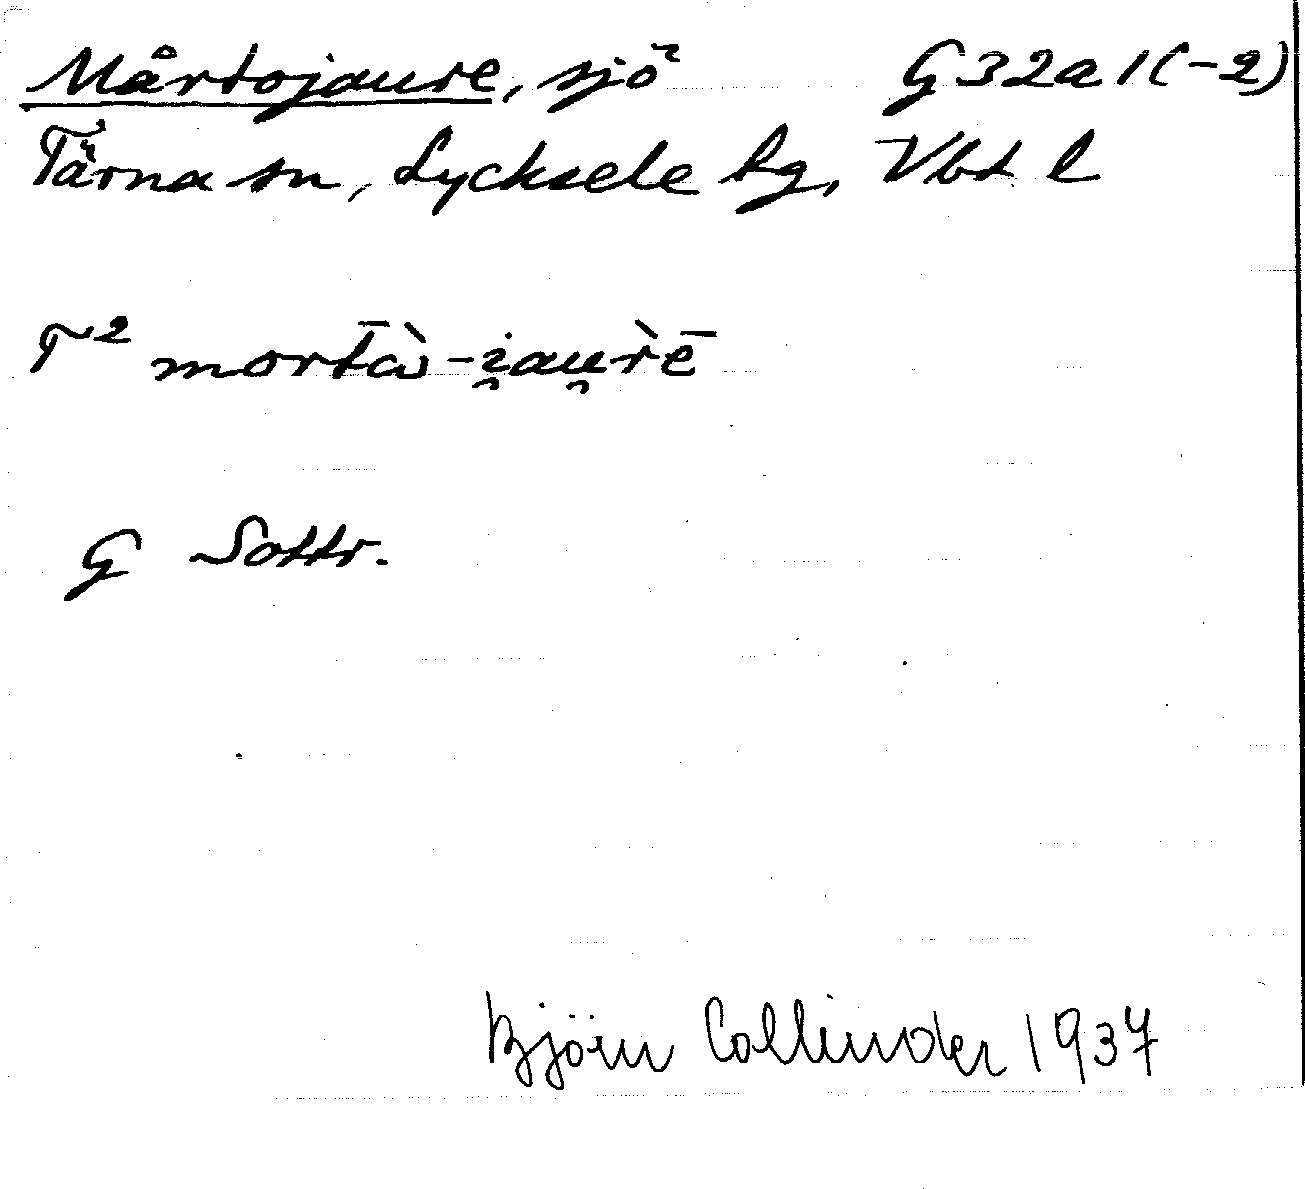 Mårtojaure, sjö G32a1(-2)
Tärna sn, Lycksele lg, Vbt l
T² mort̄ὰ-i̯au̯r̀ē
G Sottr.
Björn Collinder 1937